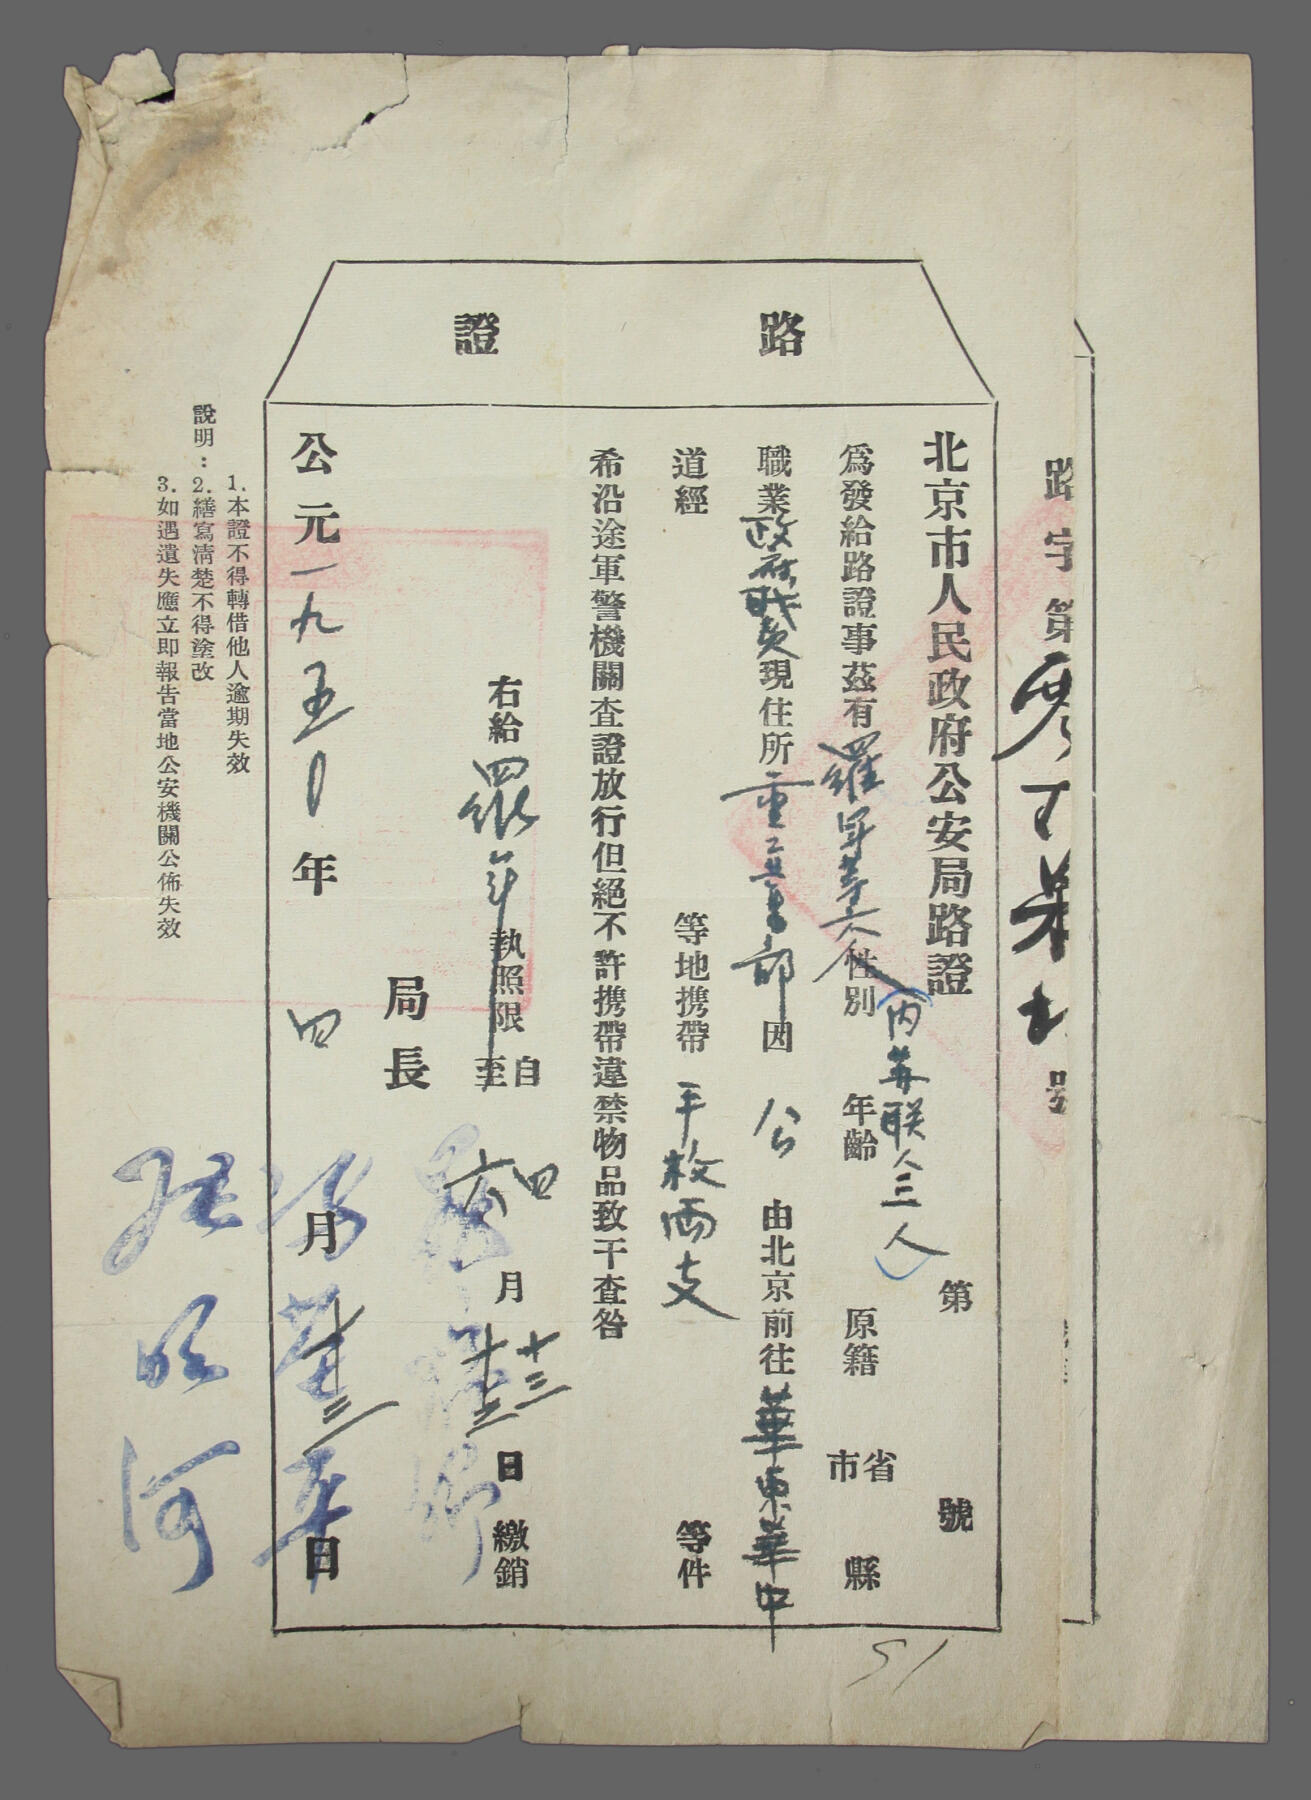 路證
路字第 號
北京市人民政府公安局路證 第 號
為發給路證事茲有羅軍等六人(內苏联人三人)性別 年齡 原籍 省市 縣
職業政府職员現住所重工業部因公由北京前往華東華中
道經 等地攜帶手枪両支 等件
希沿途軍警機關查證放行但絕不許攜帶違禁物品致干查咎
右給羅軍執照限自四月十三日至六月十三日繳銷
局長
公元一九五〇年四月十三日
說明：1.本證不得轉借他人逾期失效
2.繕寫清楚不得塗改
3.如遇遺失應立即報告當地公安機關公佈失效
51